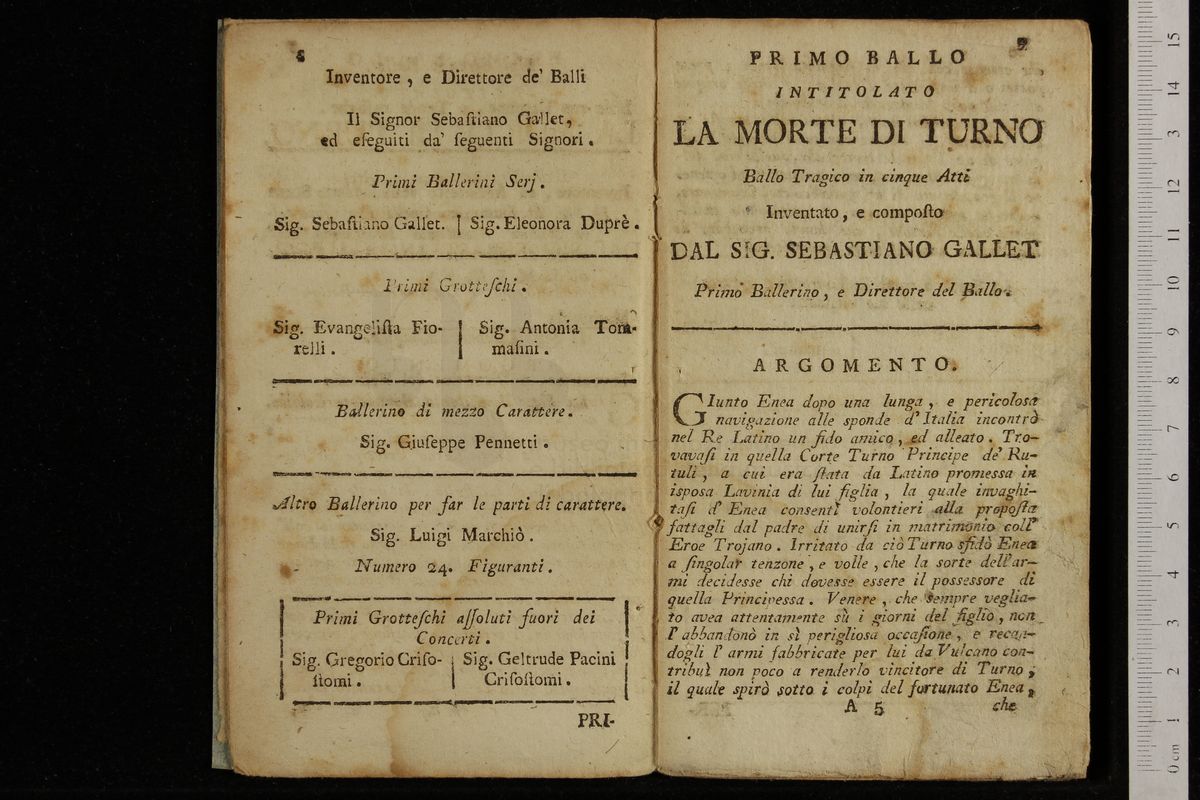 8
Inventore , e Direttore de' Balli
Il Signor Sebaſtiano Gallet,
ed eſeguiti da' ſeguenti Signori .
Primi Ballerini Serj .
Sig. Sebaſtiano Gallet. | Sig. Eleonora Duprè .
Primi Grotteſchi .
Sig. Evangeliſta Fio- | Sig. Antonia Tom-
relli . | maſini .
Ballerino di mezzo Carattere .
Sig. Giuſeppe Pennetti .
Altro Ballerino per far le parti di carattere.
Sig. Luigi Marchiò .
Numero 24. Figuranti .
Primi Grotteſchi aſſoluti fuori dei
Concerti .
Sig. Gregorio Criſo- | Sig. Geltrude Pacini
ſtomi . | Criſoſtomi .
PRI-
9
PRIMO BALLO
INTITOLATO
LA MORTE DI TURNO
Ballo Tragico in cinque Atti
Inventato , e compoſto
DAL SIG. SEBASTIANO GALLET
Primo Ballerino , e Direttore del Ballo .
ARGOMENTO.
GIunto Enea dopo una lunga , e pericolosa
navigazione alle sponde d' Italia incontrò
nel Re Latino un fido amico , ed alleato . Tro-
vavaſi in quella Corte Turno Principe de' Ru-
tuli , a cui era ſtata da Latino promessa in
isposa Lavinia di lui figlia , la quale invaghi-
taſi d' Enea consentì volontieri alla propoſta
fattagli dal padre di unirſi in matrimonio coll'
Eroe Trojano . Irritato da ciò Turno sfidò Enea
a ſingolar tenzone , e volle , che la sorte dell' ar-
mi decidesse chi dovesse essere il possessore di
quella Principessa . Venere , che sempre veglia-
to avea attentamente sù i giorni del figlio , non
l' abbandonò in sì perigliosa occaſione , e recan-
dogli l' armi fabbricate per lui da Vulcano con-
tribuì non poco a renderlo vincitore di Turno ,
il quale spirò sotto i colpi del fortunato Enea ,
A 5 che
0 cm 1 2 3 4 5 6 7 8 9 10 11 12 3 14 15